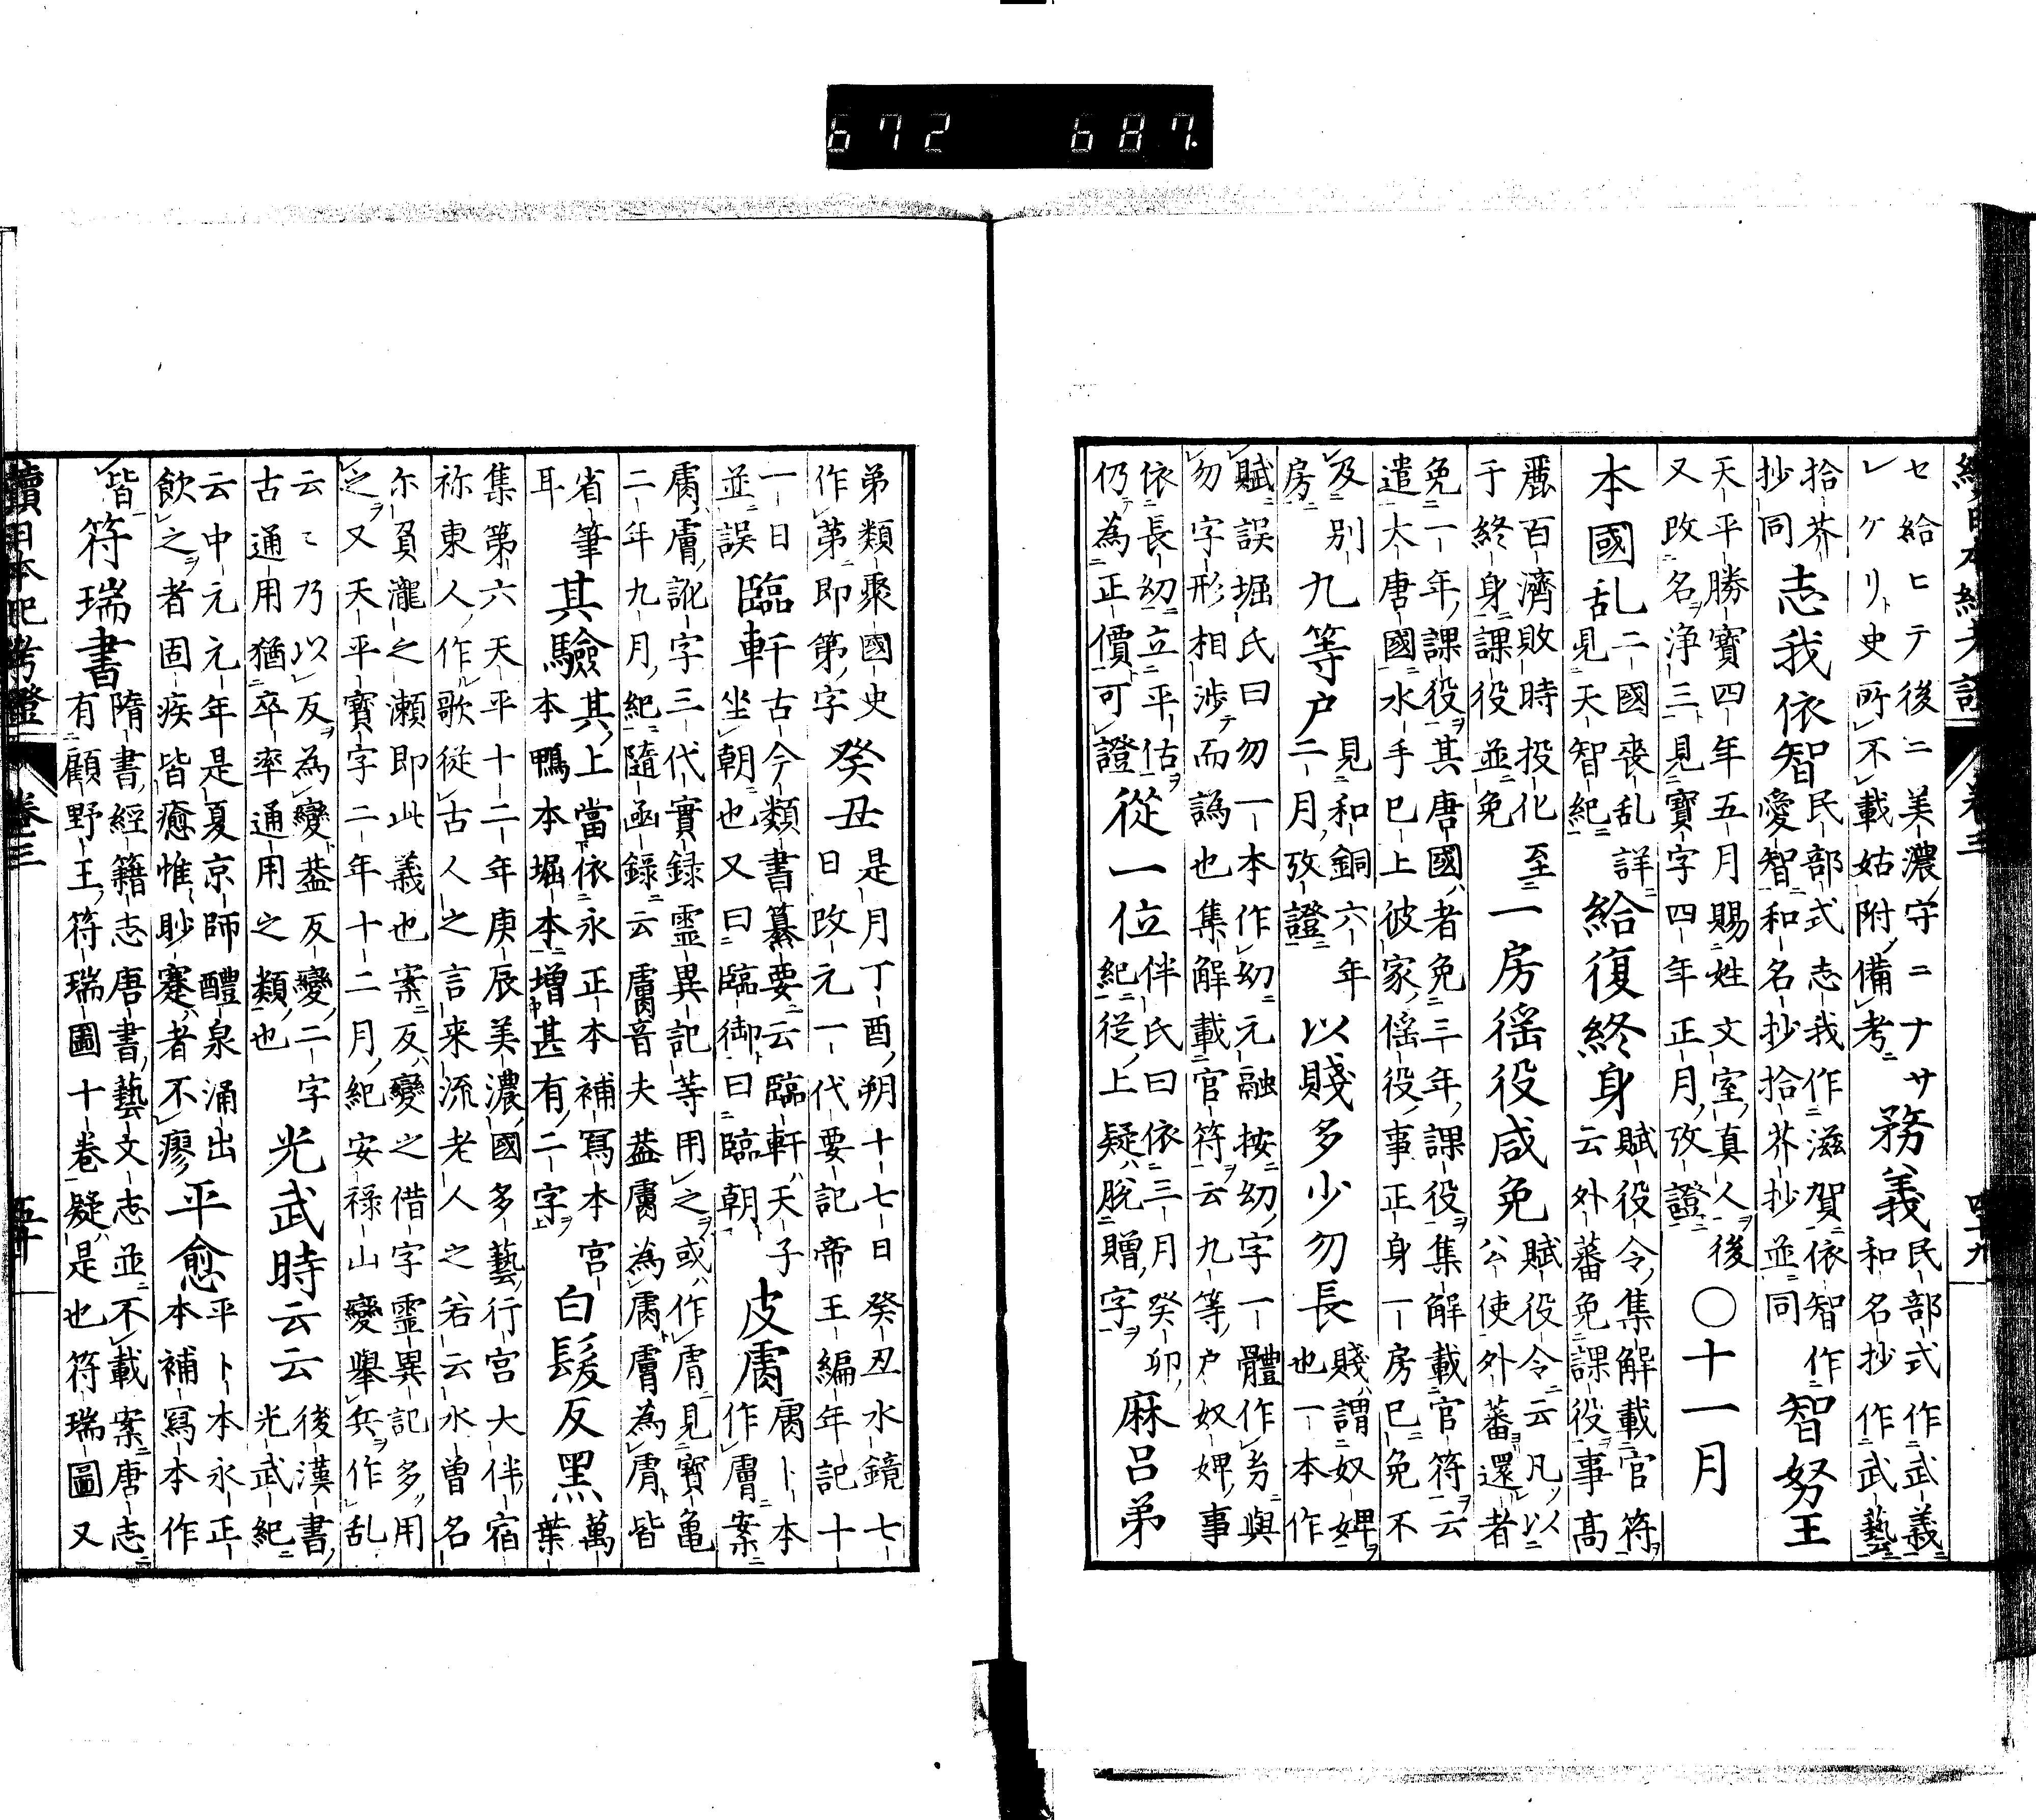 672 687
續日本紀考證 卷三 四十九
セ給ヒテ後ニ美濃守ニナサ
レケリト史所不載姑附備考
務義
民部式作武義
和名抄作武藝
拾芥
抄同
志我依智
民部式志我作滋賀依智作
愛智和名抄拾芥抄並同
智努王
天平勝寶四年五月賜姓文室真人後
又改名浄三見寶字四年正月攷證
○十一月
本國乱
二國喪乱詳
見天智紀
給復終身
賦役令集解載官符
云外蕃免課役事高
麗百濟敗時投化至
于終身課役並免
一房徭役咸免
賦役令云凡以
公使外蕃還者
免一年課役其唐國者免三年課役集解載官符云
遣大唐國水手已上彼家徭役事正身一房已免不
及別
房
九等戸
見和銅六年
二月攷證
以賤多少勿長
賤謂奴婢
也一本作
賦誤堀氏曰勿一本作幼元融按幼字一體作㓜與
勿字形相渉而譌也集解載官符云九等戸奴婢事
依長幼立平估
仍為正價可證
從一位
伴氏曰依三月癸卯
紀從上疑脱贈字
麻呂弟
弟類聚國史
作第即第字
癸丑
是月丁酉朔十七日癸丑水鏡七
日改元一代要記帝王編年記十
一日
並誤
臨軒
古今類書纂要云臨軒天子
坐朝也又曰臨御曰臨朝
皮膚
膚卜本
作膚案
膚膚訛字三代實録霊異記等用之或作㡯見寶龜
二年九月紀隨函録云膚音夫蓋膚為膚膚為㡯皆
省筆
耳
其驗
其上當依永正本補寫本宮
本鴨本堀本增甚有二字
白髮反黑
萬
葉
集第六天平十二年庚辰美濃國多藝行宮大伴宿
祢東人作歌從古人之言来流老人之若云水曽名
尓負瀧之瀬即此義也案反變之借字霊異記多用
之又天平寳字二年十二月紀安禄山變舉兵作乱
云々乃以反為變蓋反變二字
古通用猶卒率通用之類也
光武時云云
後漢書
光武紀
云中元元年是夏京師醴泉涌出
飲之者固疾皆癒惟眇蹇者不瘳
平愈
平卜本永正
本補寫本作
皆
符瑞書
隋書經籍志唐書藝文志並不載案唐志
有顧野王符瑞圖十卷疑是也符瑞圖又
續日本紀考證 卷三 五十